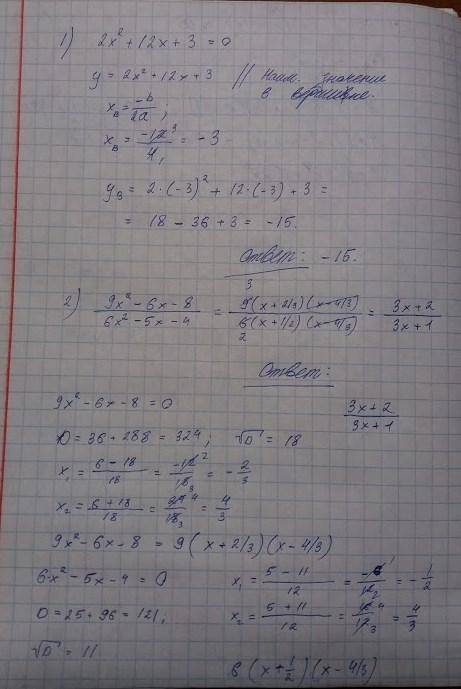 1) 2x² + 12x + 3 = 0
y = 2x² + 12x + 3 // Наим. значение
в вершине.
xв = -b/2a ;
xв = -12³/4₁ = -3
yв = 2·(-3)² + 12·(-3) + 3 =
= 18 - 36 + 3 = -15.
Ответ: -15.
2) (9x² - 6x - 8)/(6x² - 5x - 4) = 3 9(x + 2/3)(x - 4/3)/6 2(x + 1/2)(x - 4/3) = (3x + 2)/(3x + 1)
Ответ:
9x² - 6x - 8 = 0 (3x + 2)/(3x + 1)
D = 36 + 288 = 324; √D = 18
x₁ = (6 - 18)/18 = -12²/18₃ = -2/3
x₂ = (6 + 18)/18 = 24⁴/18₃ = 4/3
9x² - 6x - 8 = 9(x + 2/3)(x - 4/3)
6x² - 5x - 4 = 0 x₁ = (5 - 11)/12 = -6¹/12₂ = -1/2
D = 25 + 96 = 121, x₂ = (5 + 11)/12 = 16⁴/12₃ = 4/3
√D = 11
6(x + 1/2)(x - 4/3)